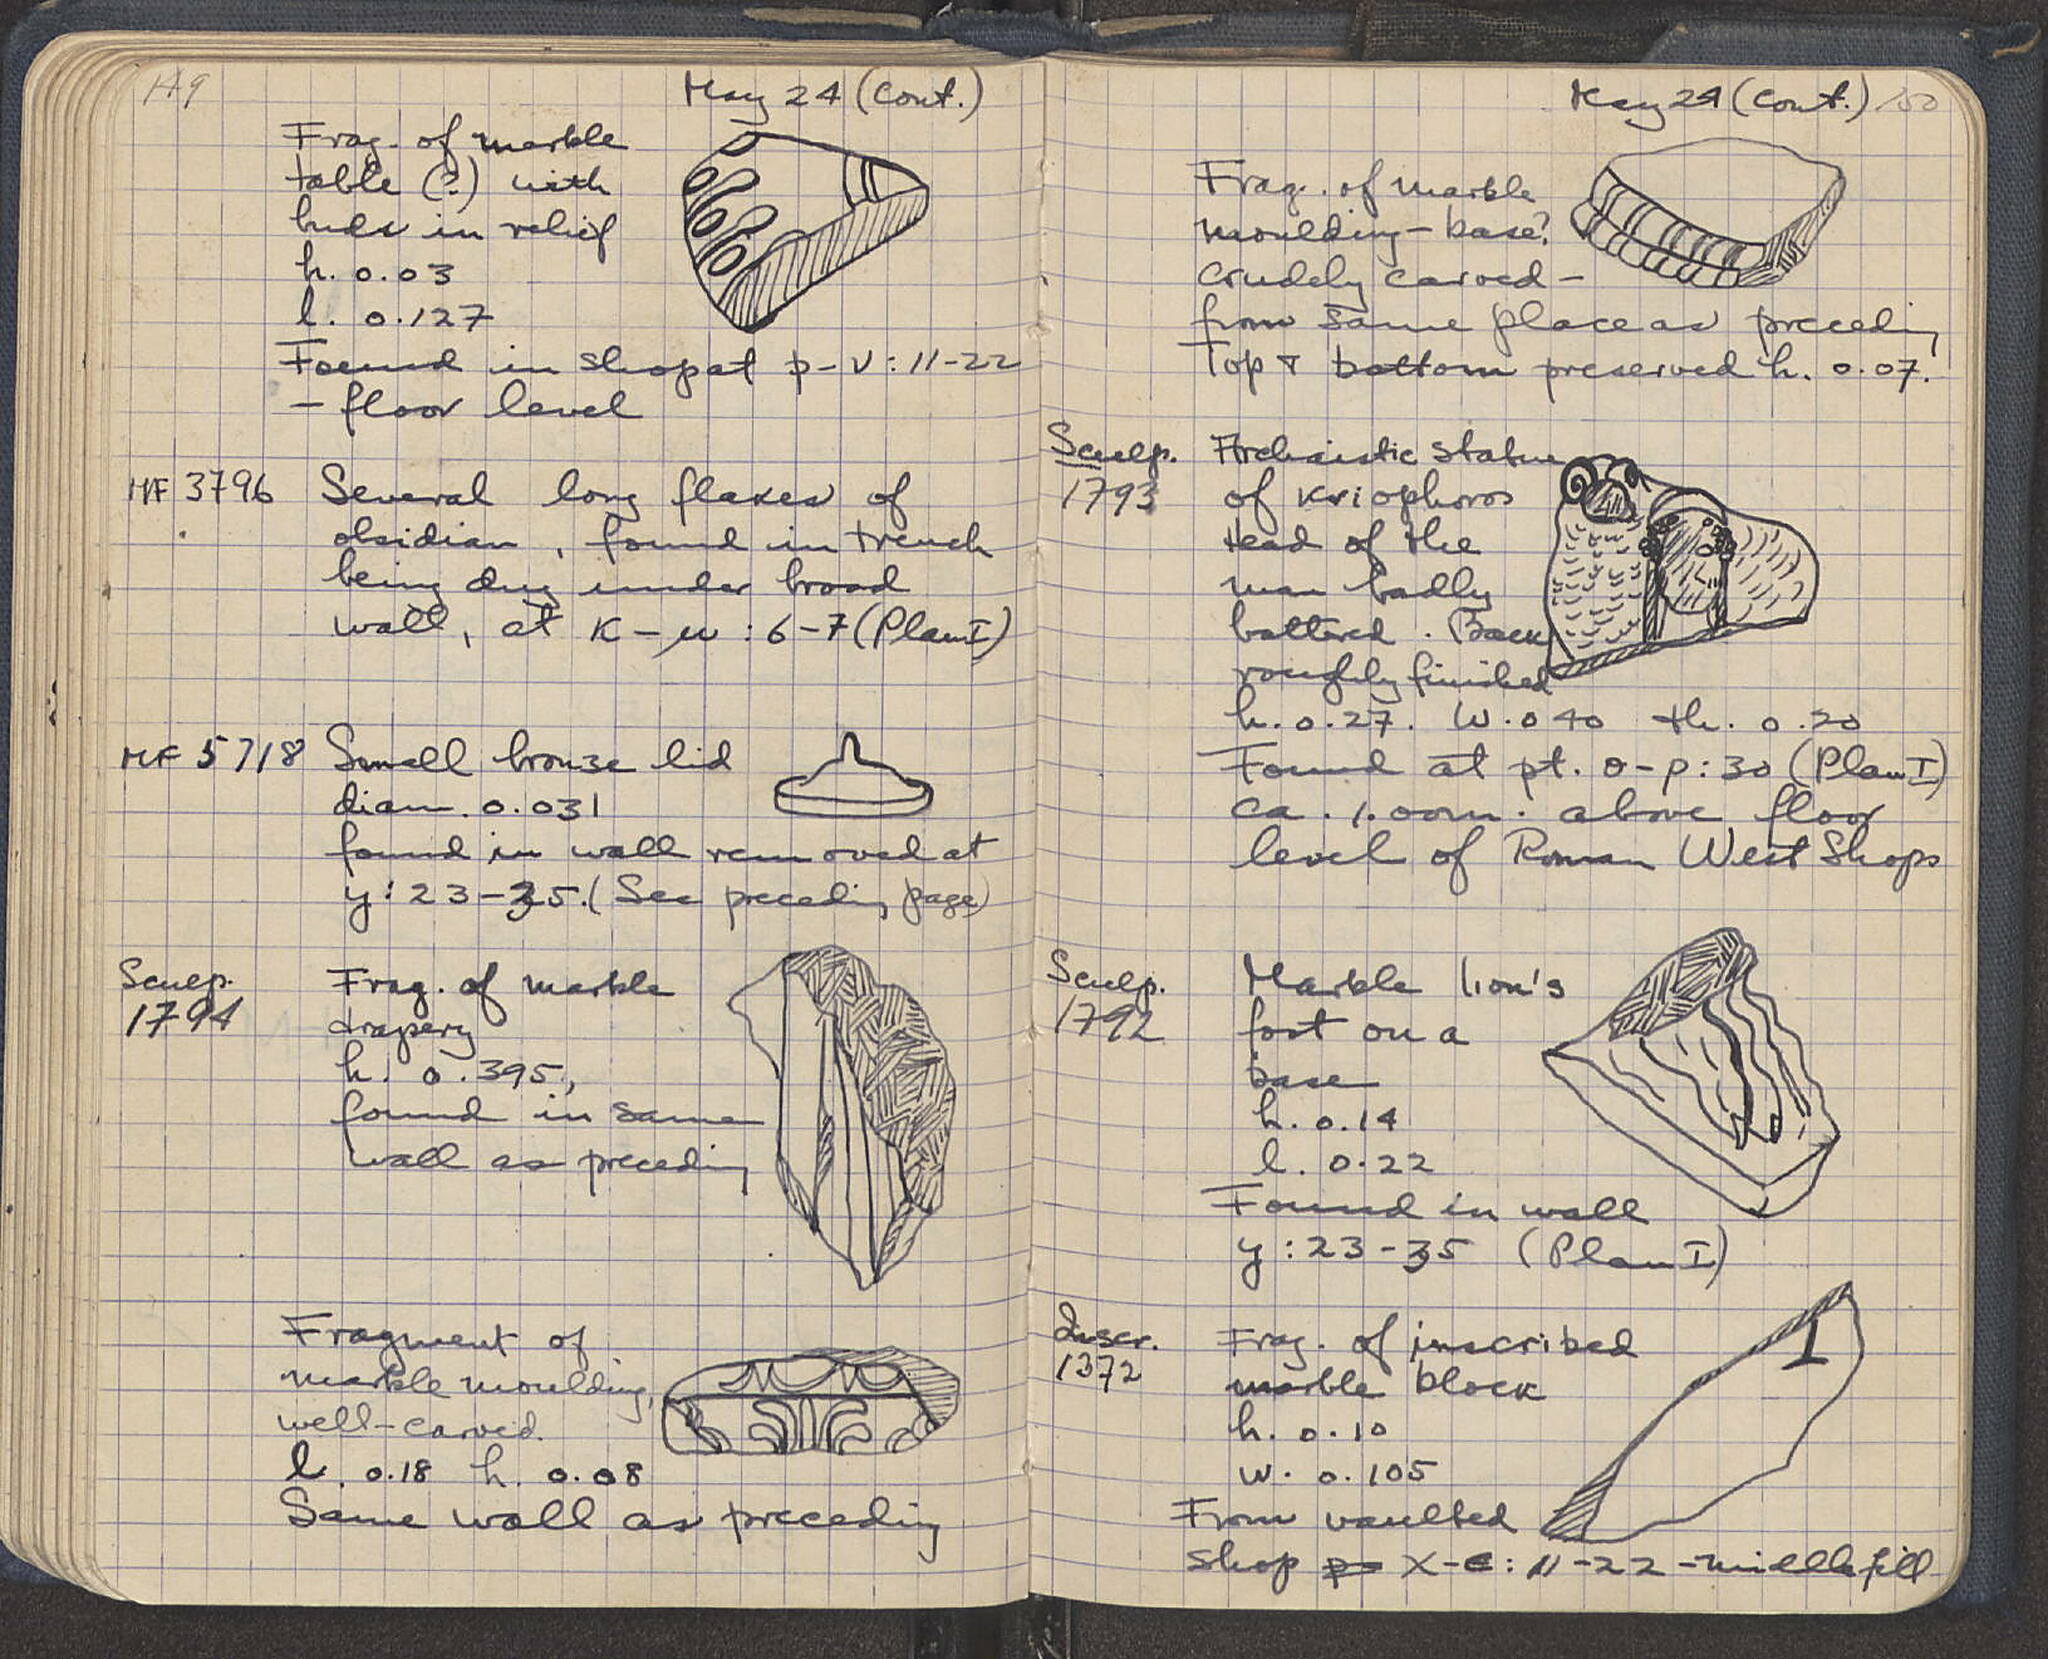 149
May 24 (cont.)
Frag. of marble
table (?) with
buds in relief
h. 0.03
l. 0.127
Found in shop at p-v: 11-22
- floor level
MF 3796
Several long flakes of
obsidian, found in trench
being dug under broad
wall, at K-μ: 6-7 (Plan I)
MF 5718
Small bronze lid
diam. 0.031
found in wall removed at
y: 23-35. (See preceding page)
Sculp.
1794
Frag. of marble
drapery
h. 0.395,
found in same
wall as preceding
Fragment of
marble moulding,
well-carved.
l. 0.18 h. 0.08
Same wall as preceding
May 24 (cont.) 150
Frag. of marble
moulding - base?
crudely carved -
from same place as preceding
Top & bottom preserved h. 0.07.
Sculp.
1793
Archaistic statue
of Kriophoros
Head of the
man badly
battered. Back
roughly finished
h. 0.27. W. 0 40 th. 0.20
Found at pt. o-p: 30 (Plan I)
ca. 1.00m. above floor
level of Roman West Shops
Sculp.
1792
Marble lion's
foot on a
base
h. 0.14
l. 0.22
Found in wall
y: 23-35 (Plan I)
Inscr.
1372
Frag. of inscribed
marble block
h. 0.10
w. 0.105
I
From vaulted
shop X-E: 11-22 - middle fill